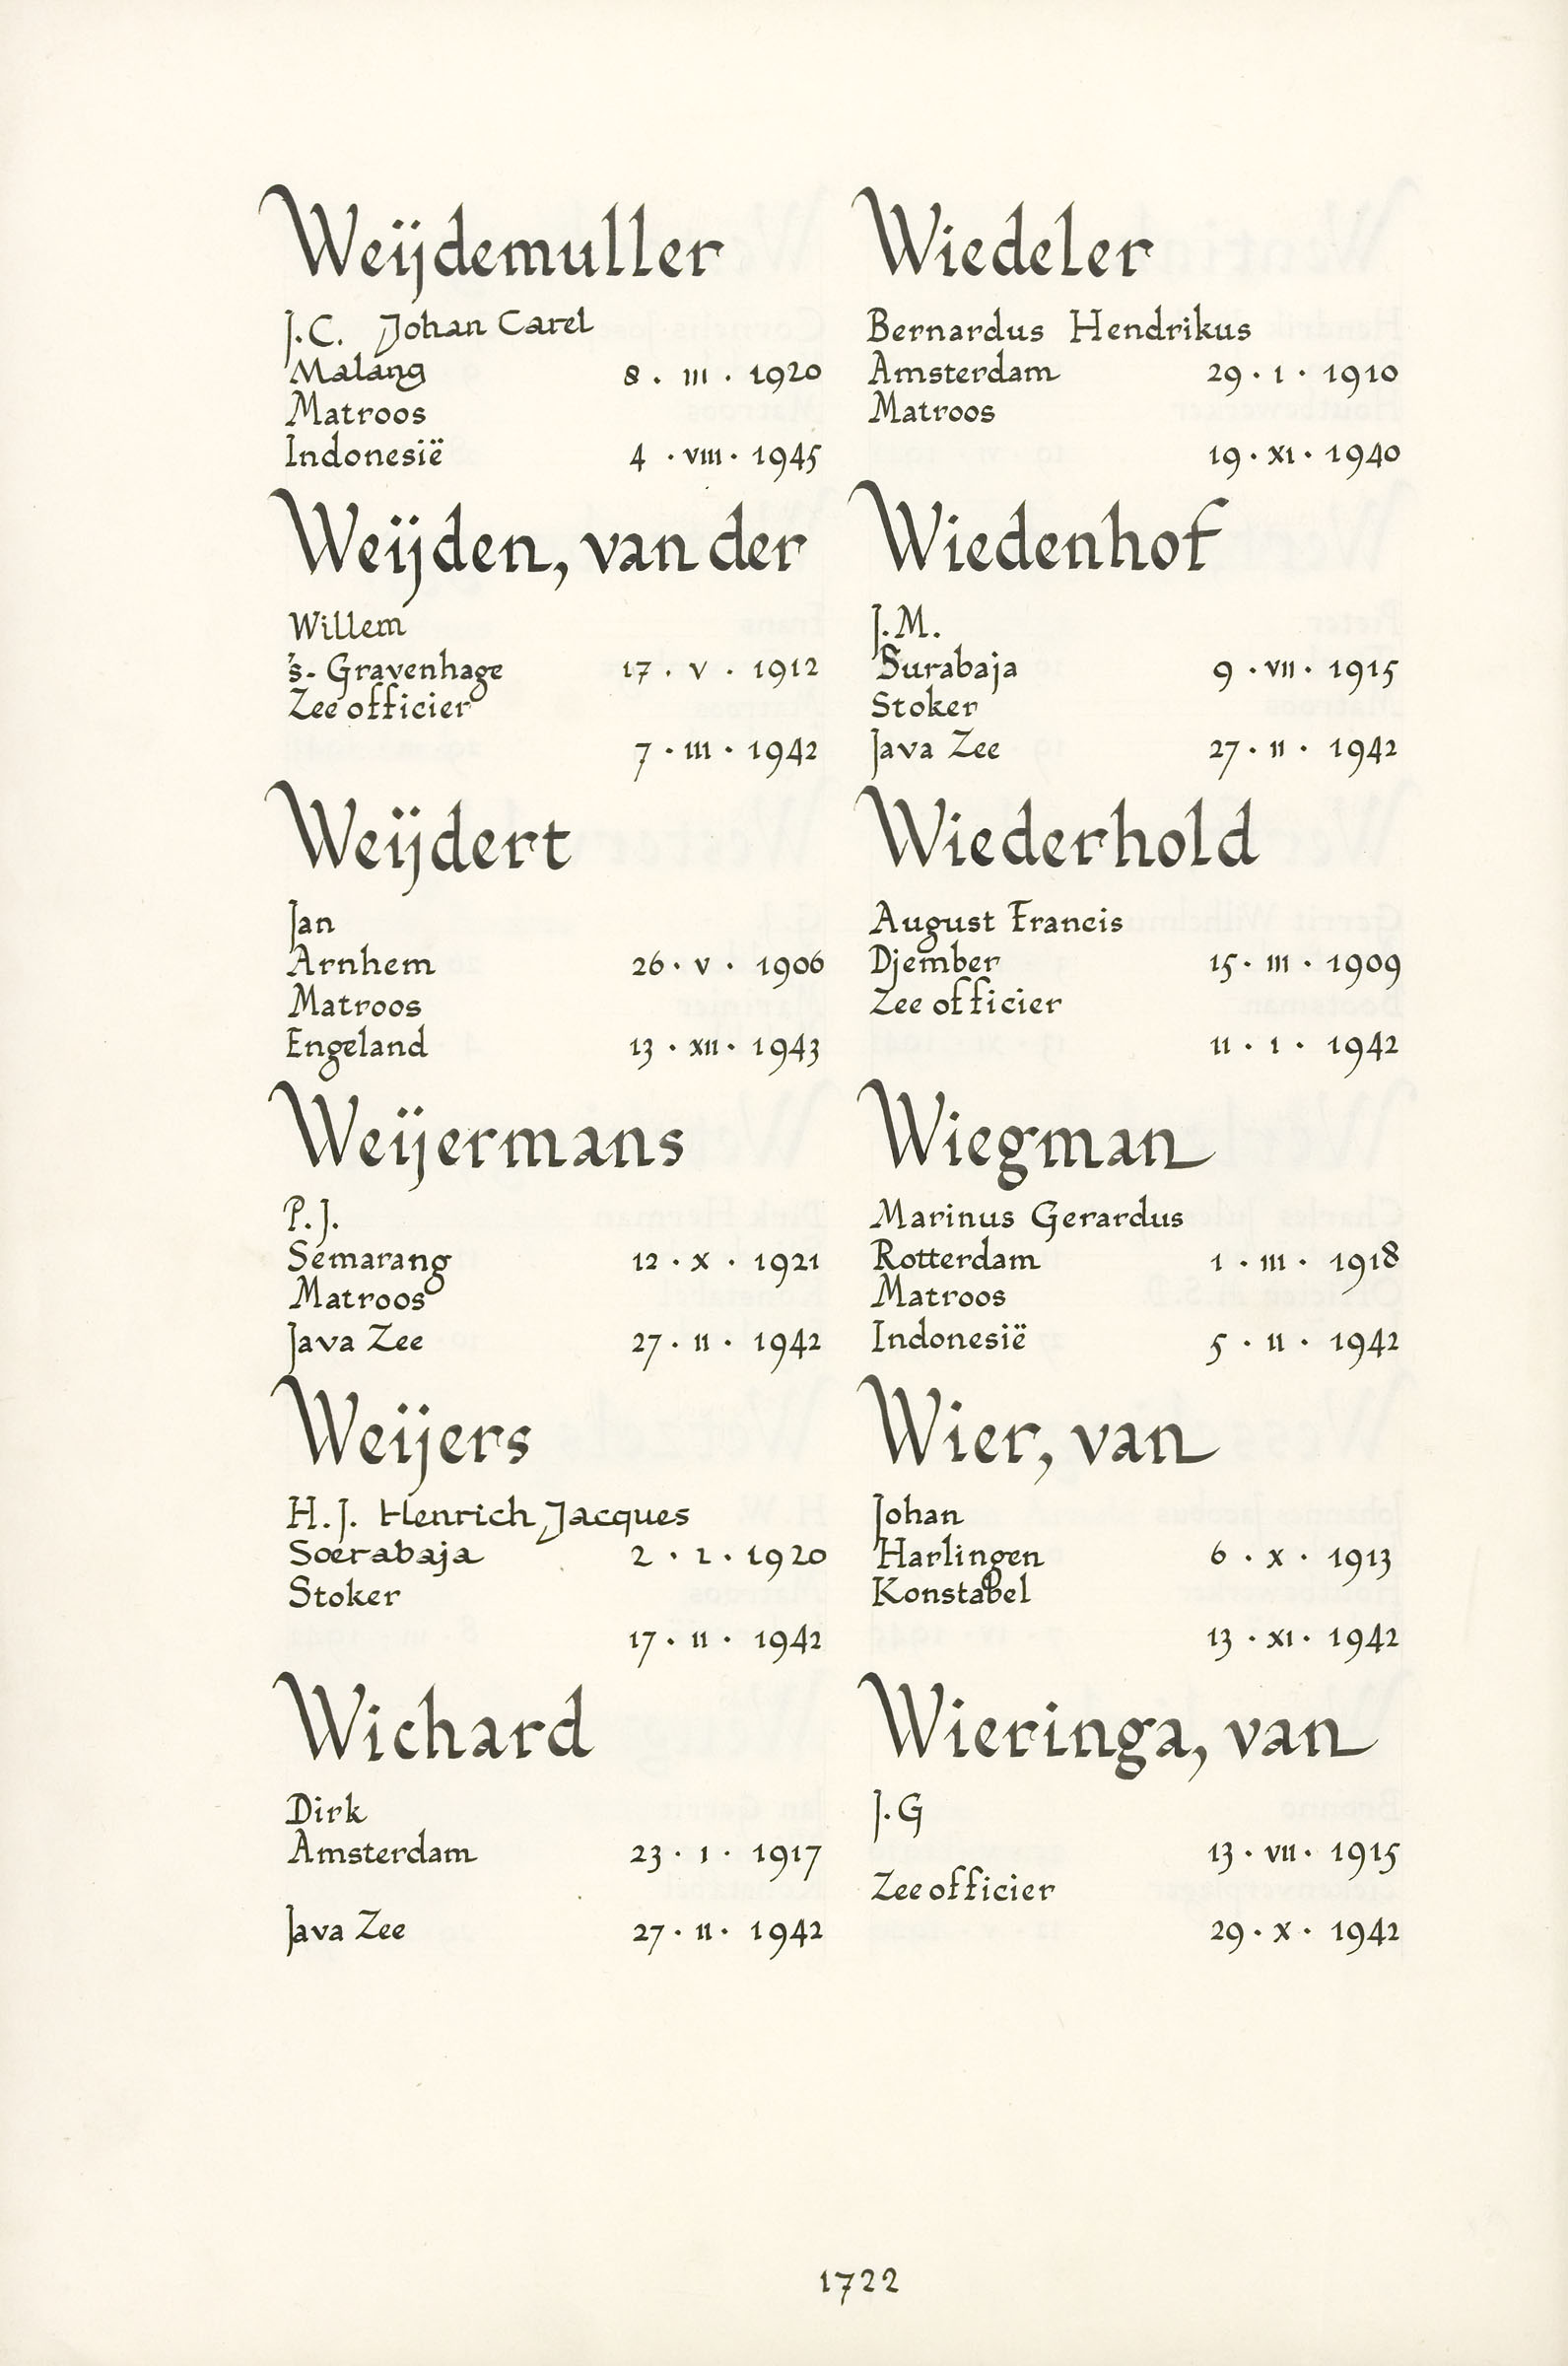 Weijdemuller
J.C. Johan Carel
Malang 8 · III · 1920
Matroos
Indonesië 4 · VIII · 1945
Weijden, van der
Willem
's-Gravenhage 17 · V · 1912
Zee officier
7 · III · 1942
Weijdert
Jan
Arnhem 26 · V · 1906
Matroos
Engeland 13 · XII · 1943
Weijermans
P.J.
Semarang 12 · X · 1921
Matroos
Java Zee 27 · II · 1942
Weijers
H.J. Henrich Jacques
Soerabaja 2 · 2 · 1920
Stoker
17 · II · 1942
Wichard
Dirk
Amsterdam 23 · I · 1917
Java Zee 27 · II · 1942
Wiedeler
Bernardus Hendrikus
Amsterdam 29 · I · 1910
Matroos
19 · XI · 1940
Wiedenhof
J.M.
Surabaja 9 · VII · 1915
Stoker
Java Zee 27 · II · 1942
Wiederhold
August Francis
Djember 15 · III · 1909
Zee officier
11 · I · 1942
Wiegman
Marinus Gerardus
Rotterdam 1 · III · 1918
Matroos
Indonesië 5 · II · 1942
Wier, van
Johan
Harlingen 6 · X · 1913
Konstabel
13 · XI · 1942
Wieringa, van
J.G
13 · VII · 1915
Zee officier
29 · X · 1942
1722